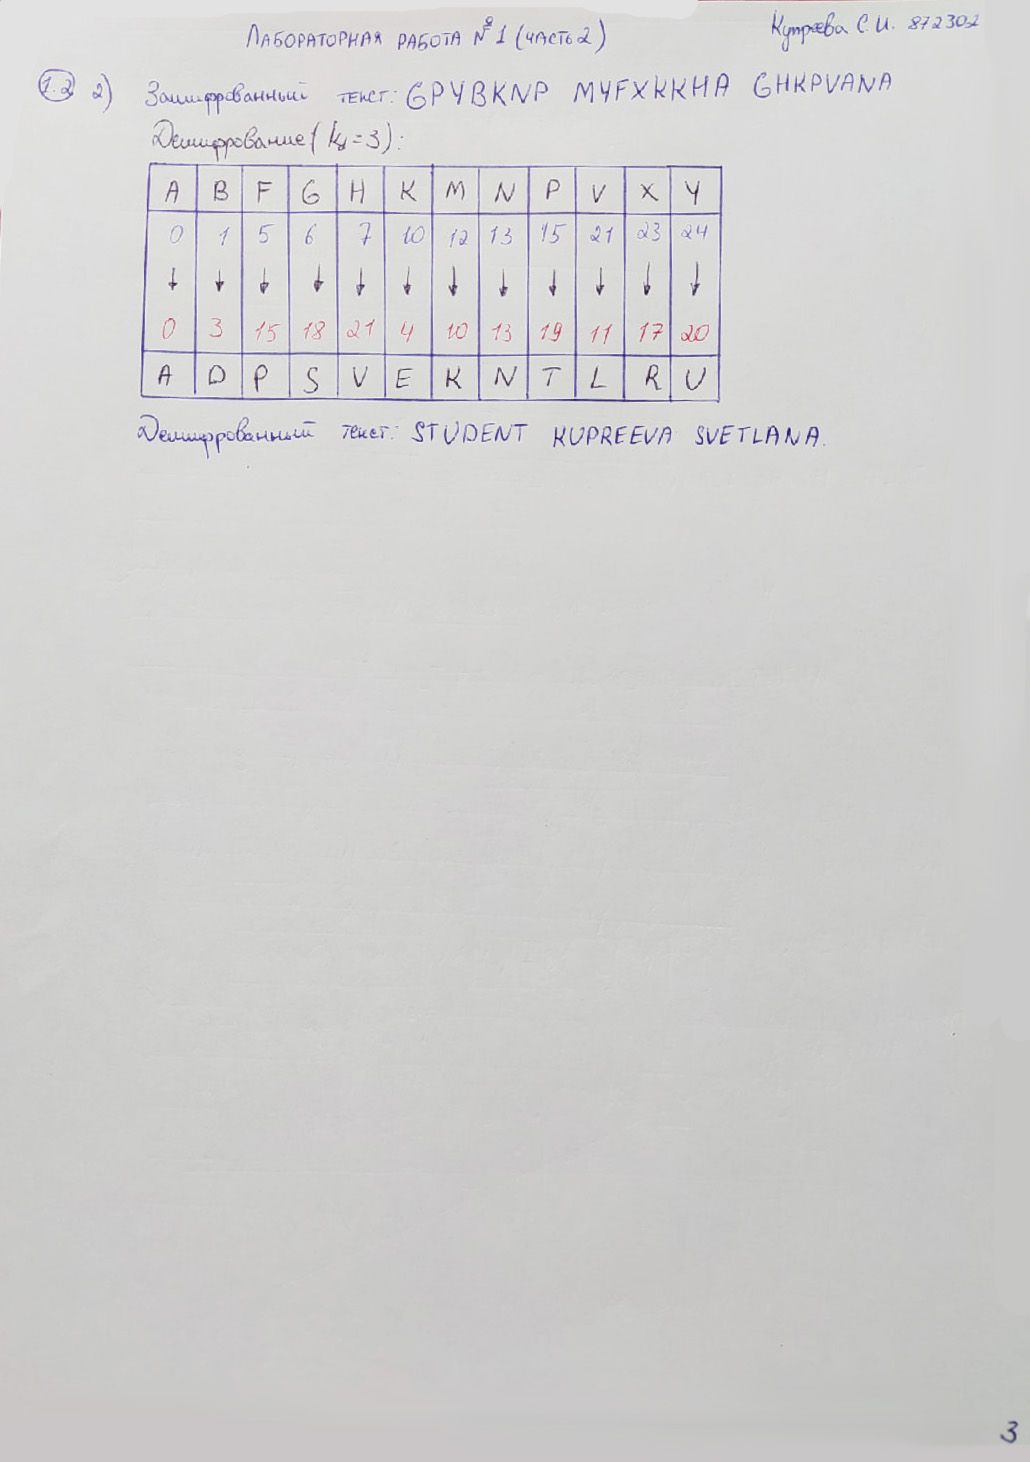 Лабораторная работа №1 (часть 2)
Купреева С.И. 872302
1.2 2) Зашифрованный текст: GPYBKNP MYFXKKHA GHKPVANA
Дешифрование (k₁=3):
A B F G H K M N P V X Y
0 1 5 6 7 10 12 13 15 21 23 24
↓ ↓ ↓ ↓ ↓ ↓ ↓ ↓ ↓ ↓ ↓ ↓
0 3 15 18 21 4 10 13 19 11 17 20
A D P S V E K N T L R U
Дешифрованный текст: STUDENT KUPREEVA SVETLANA.
3